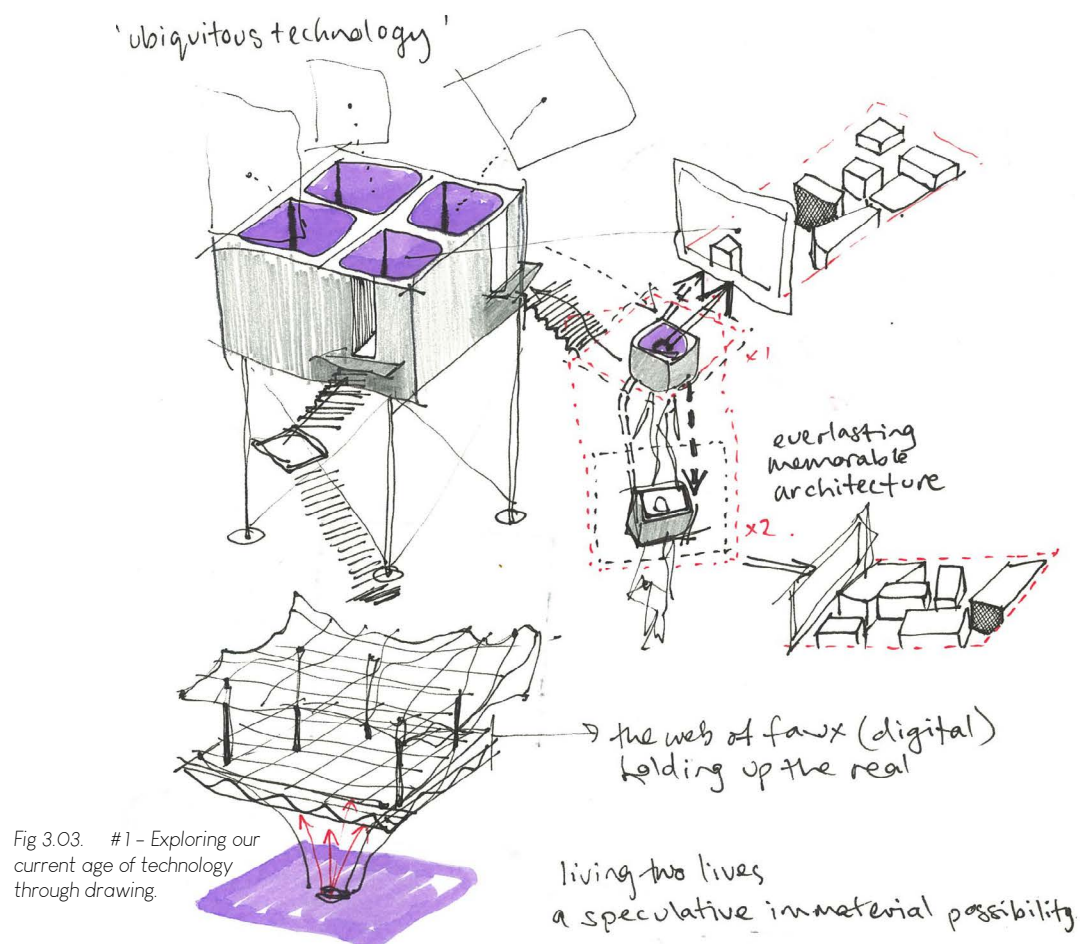 'ubiquitous technology'
x1
everlasting
memorable
architecture
x2.
the web of faux (digital)
holding up the real
Fig 3.03. #1 – Exploring our
current age of technology
through drawing.
living two lives
a speculative immaterial possibility